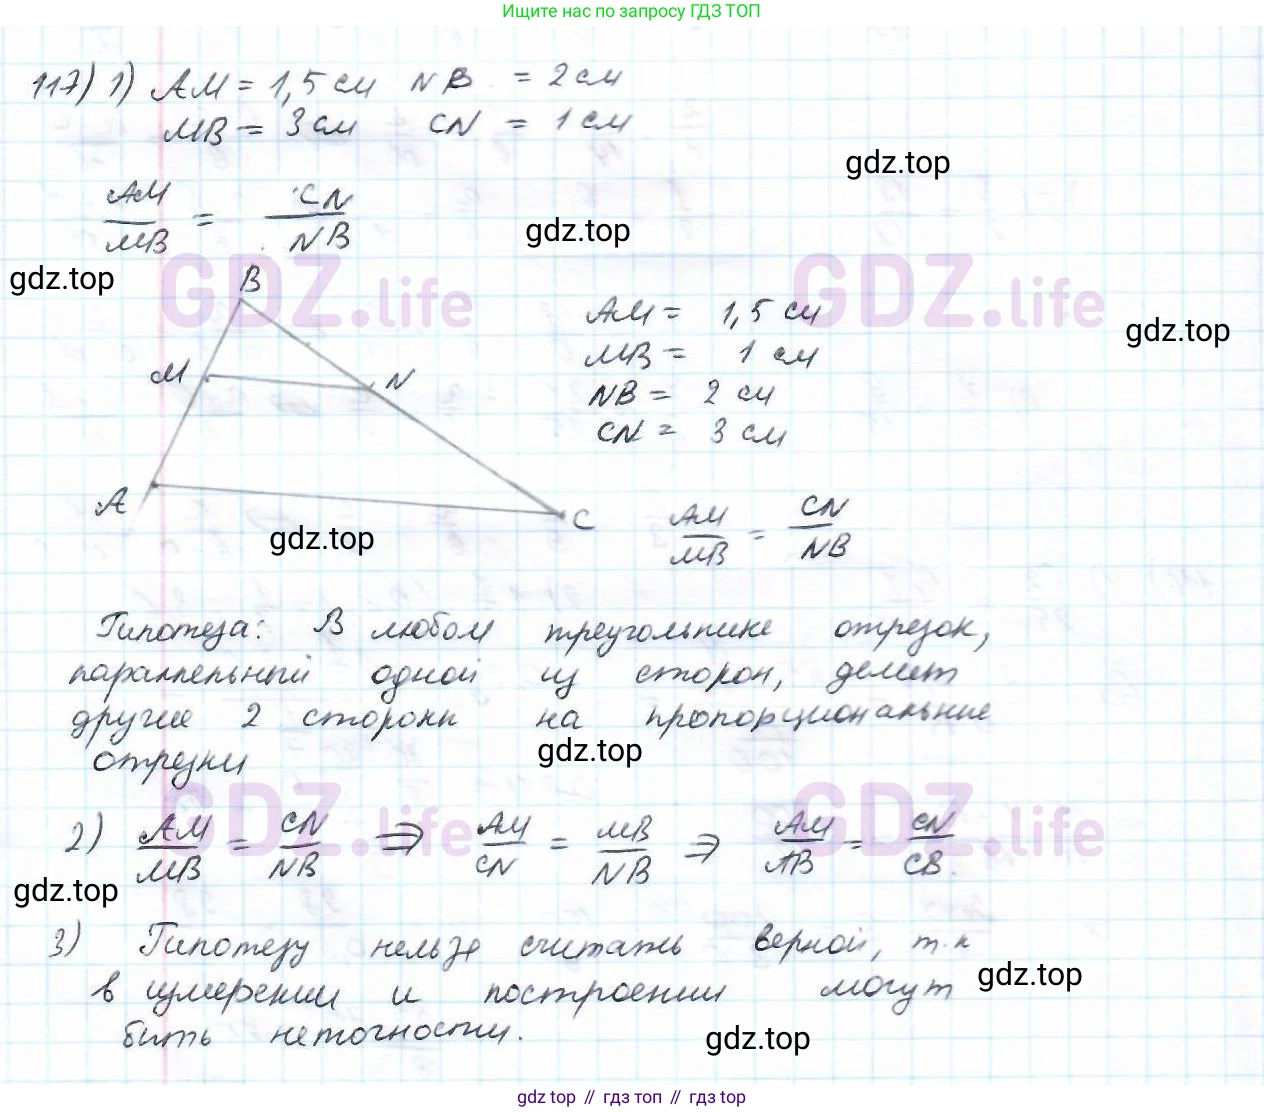 Ищите нас по запросу ГДЗ ТОП
117) 1) AM = 1,5 см NB = 2 см
MB = 3 см CN = 1 см
gdz.top
AM/MB = CN/NB
gdz.top
gdz.top
GDZ.life
GDZ.life
B
AM = 1,5 см
gdz.top
MB = 1 см
M N
NB = 2 см
CN = 3 см
A C
AM/MB = CN/NB
gdz.top
Гипотеза: В любом треугольнике отрезок,
параллельный одной из сторон, делит
другие 2 стороны на пропорциональные
отрезки
gdz.top
GDZ.life
GDZ.life
2) AM/MB = CN/NB ⇒ AM/CN = MB/NB ⇒ AM/AB = CN/CB.
gdz.top
3) Гипотезу нельзя считать верной, т.к
gdz.top
в измерении и построении могут
быть неточности.
gdz.top
gdz top // гдз топ // gdz top